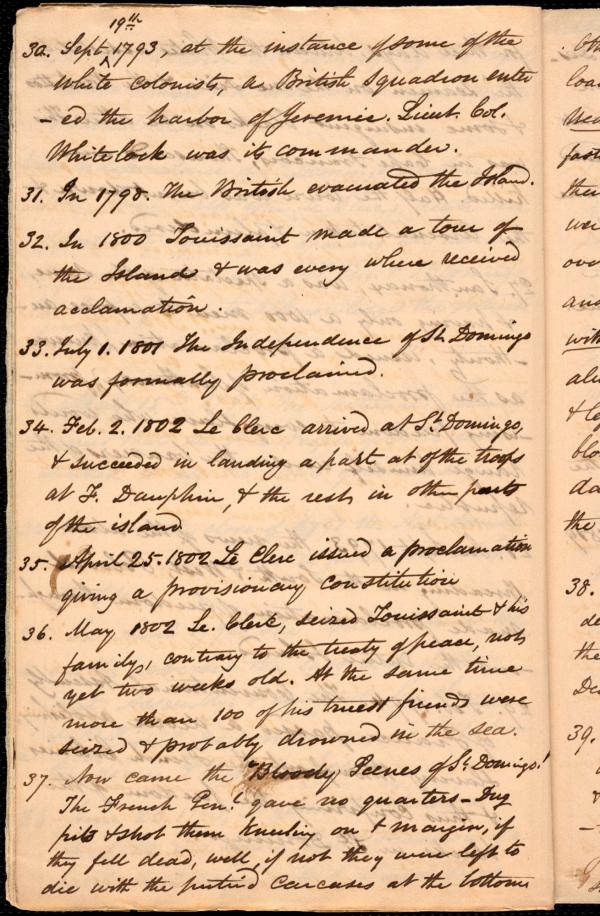 19th
30. Sept 1793, at the instance of some of the
white colonists, a British squadron enter
-ed the harbor of Jeremie. Lieut. Col.
Whitelock was its commander.
31. In 1798. The British evacuated the Island.
32. In 1800 Touissaint made a tour of
the Island & was every where received
acclamation.
33. July 1. 1801 The Independence of St. Domingo
was formally proclaimed.
34. Feb. 2. 1802 Le Clerc arrived at St. Domingo,
& succeeded in landing a part at of the troops
at F. Dauphin, & the rest, in other parts
of the island
35. April 25. 1802 Le Clerc issued a proclamation
giving a provisionary constitution
36. May 1802 Le. Clerk, seized Touissaint & his
family, contrary to the treaty of peace, not
yet two weeks old. At the same time
more than 100 of his truest friends were
seized & probably drowned in the sea.
37. Now came the "Bloody Scenes of St. Domingo!
The French Genl. gave no quarters – Dug
pits & shot them kneeling on t margin, if
they fell dead, well, if not they were left to
die with the putrid carcases at the bottom
38.
39.